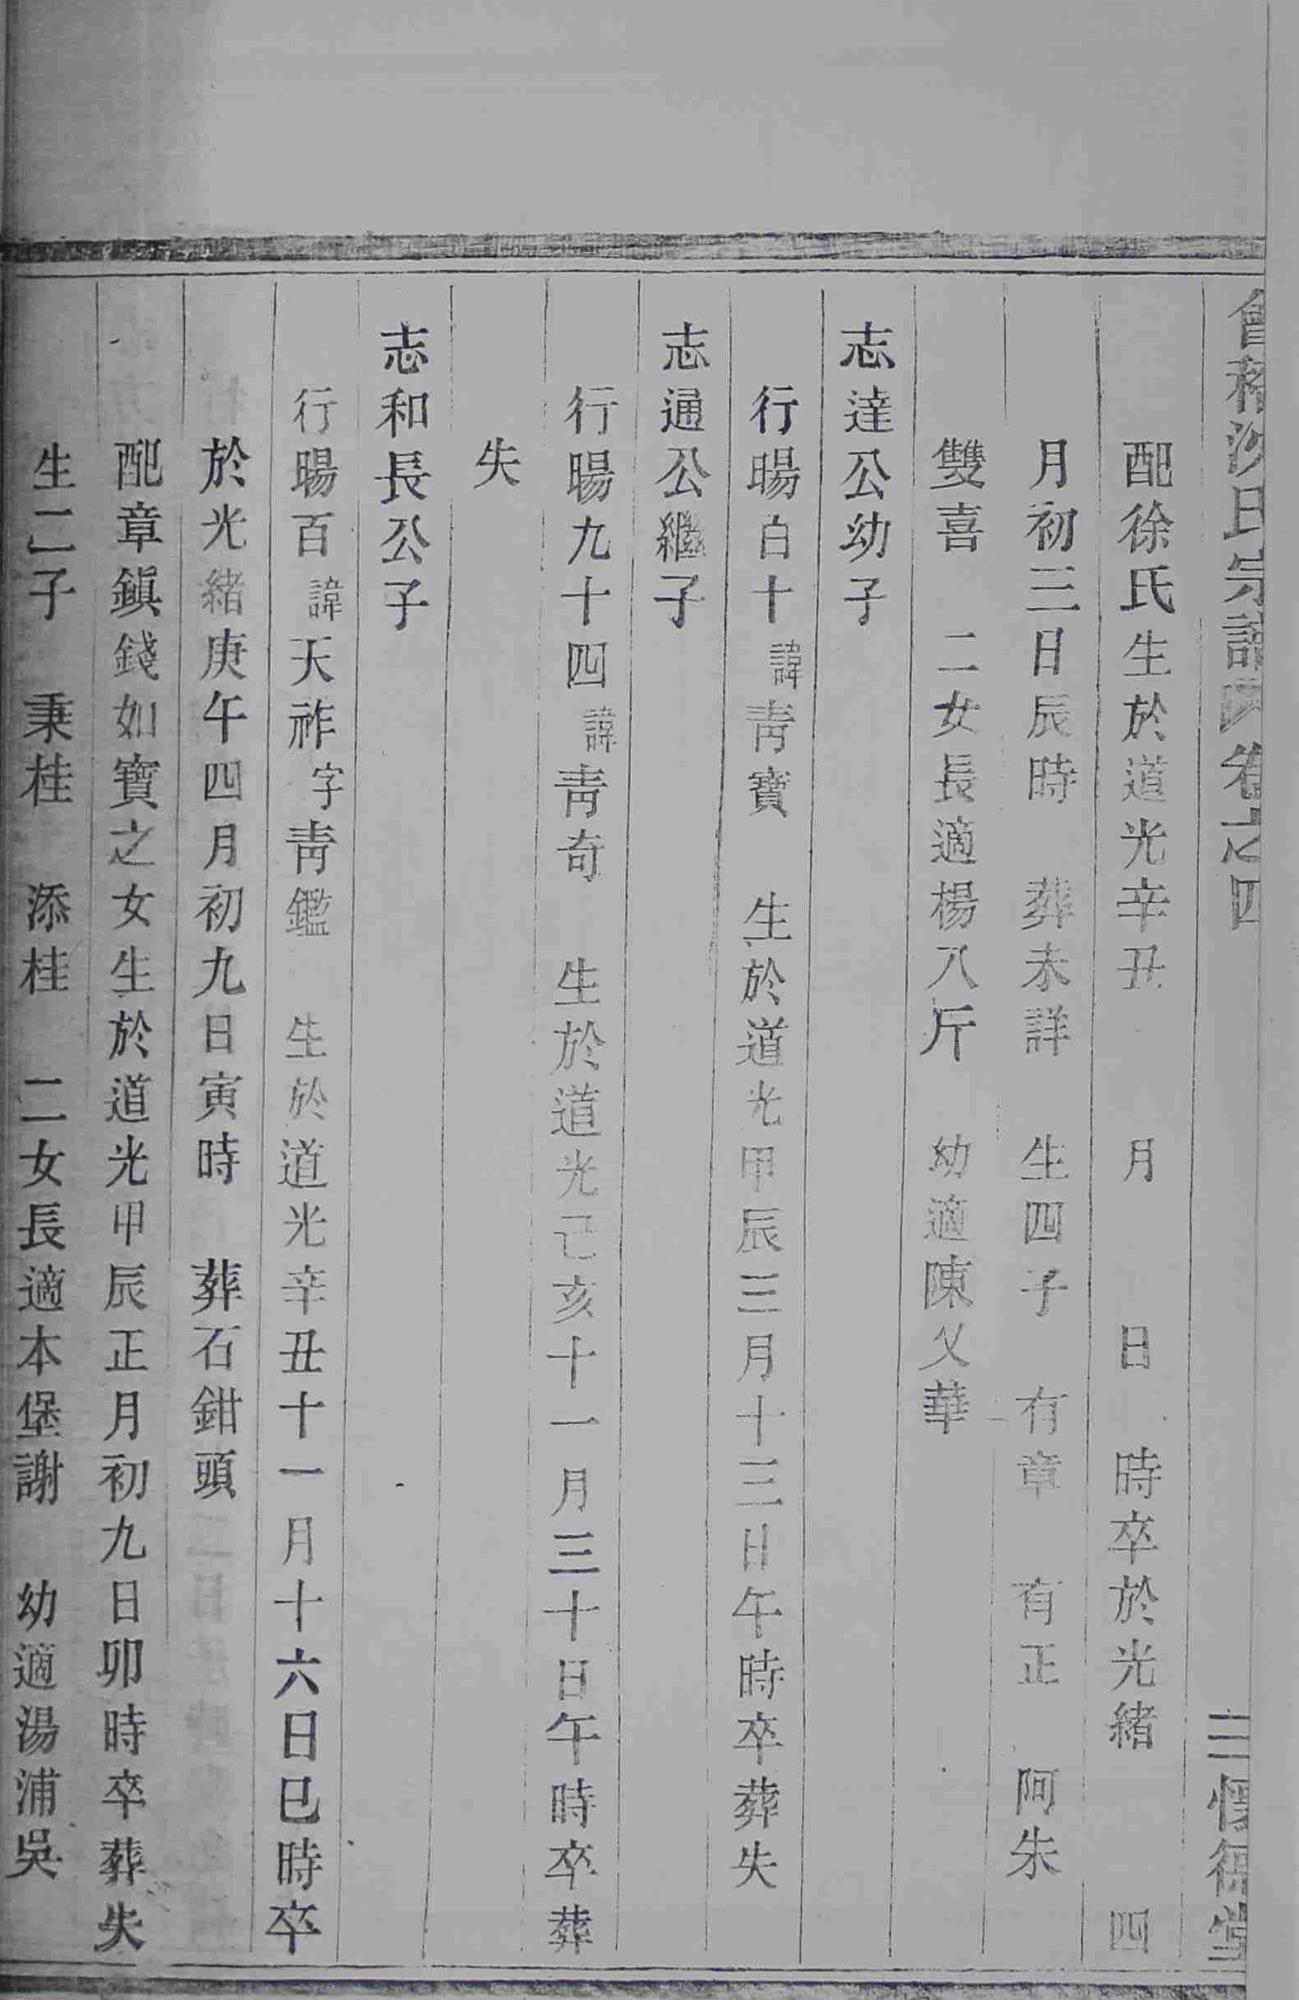 會稽沙氏宗譜 卷之四 三 懷德堂
配徐氏生於道光辛丑 月 日 時卒於光緒 四
月初三日辰時 葬未詳 生四子 有章 有正 阿朱
雙喜 二女長適楊八斤 幼適陳乂華
志達公幼子
行暘百十諱靑寶 生於道光甲辰三月十三日午時卒葬失
志通公繼子
行暘九十四諱靑奇 生於道光己亥十一月三十日午時卒葬
失
志和長公子
行暘百諱天祚字靑鑑 生於道光辛丑十一月十六日巳時卒
於光緒庚午四月初九日寅時 葬石鉗頭
配章鎭錢如寶之女生於道光甲辰正月初九日卯時卒葬失
生二子 秉桂 添桂 二女長適本堡謝 幼適湯浦吳